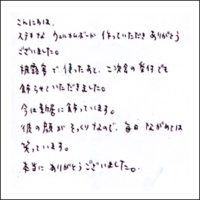 こんにちは。
ステキな ウェルカムボード 作っていただき ありがとう
ございました。
披露宴で 使ったあと、二次会の 受付でも
飾らせていただきました。
今は 玄関に 飾っています。
彼の顔が そっくりなので、毎日 ながめては
笑っています。
本当に ありがとうございました。